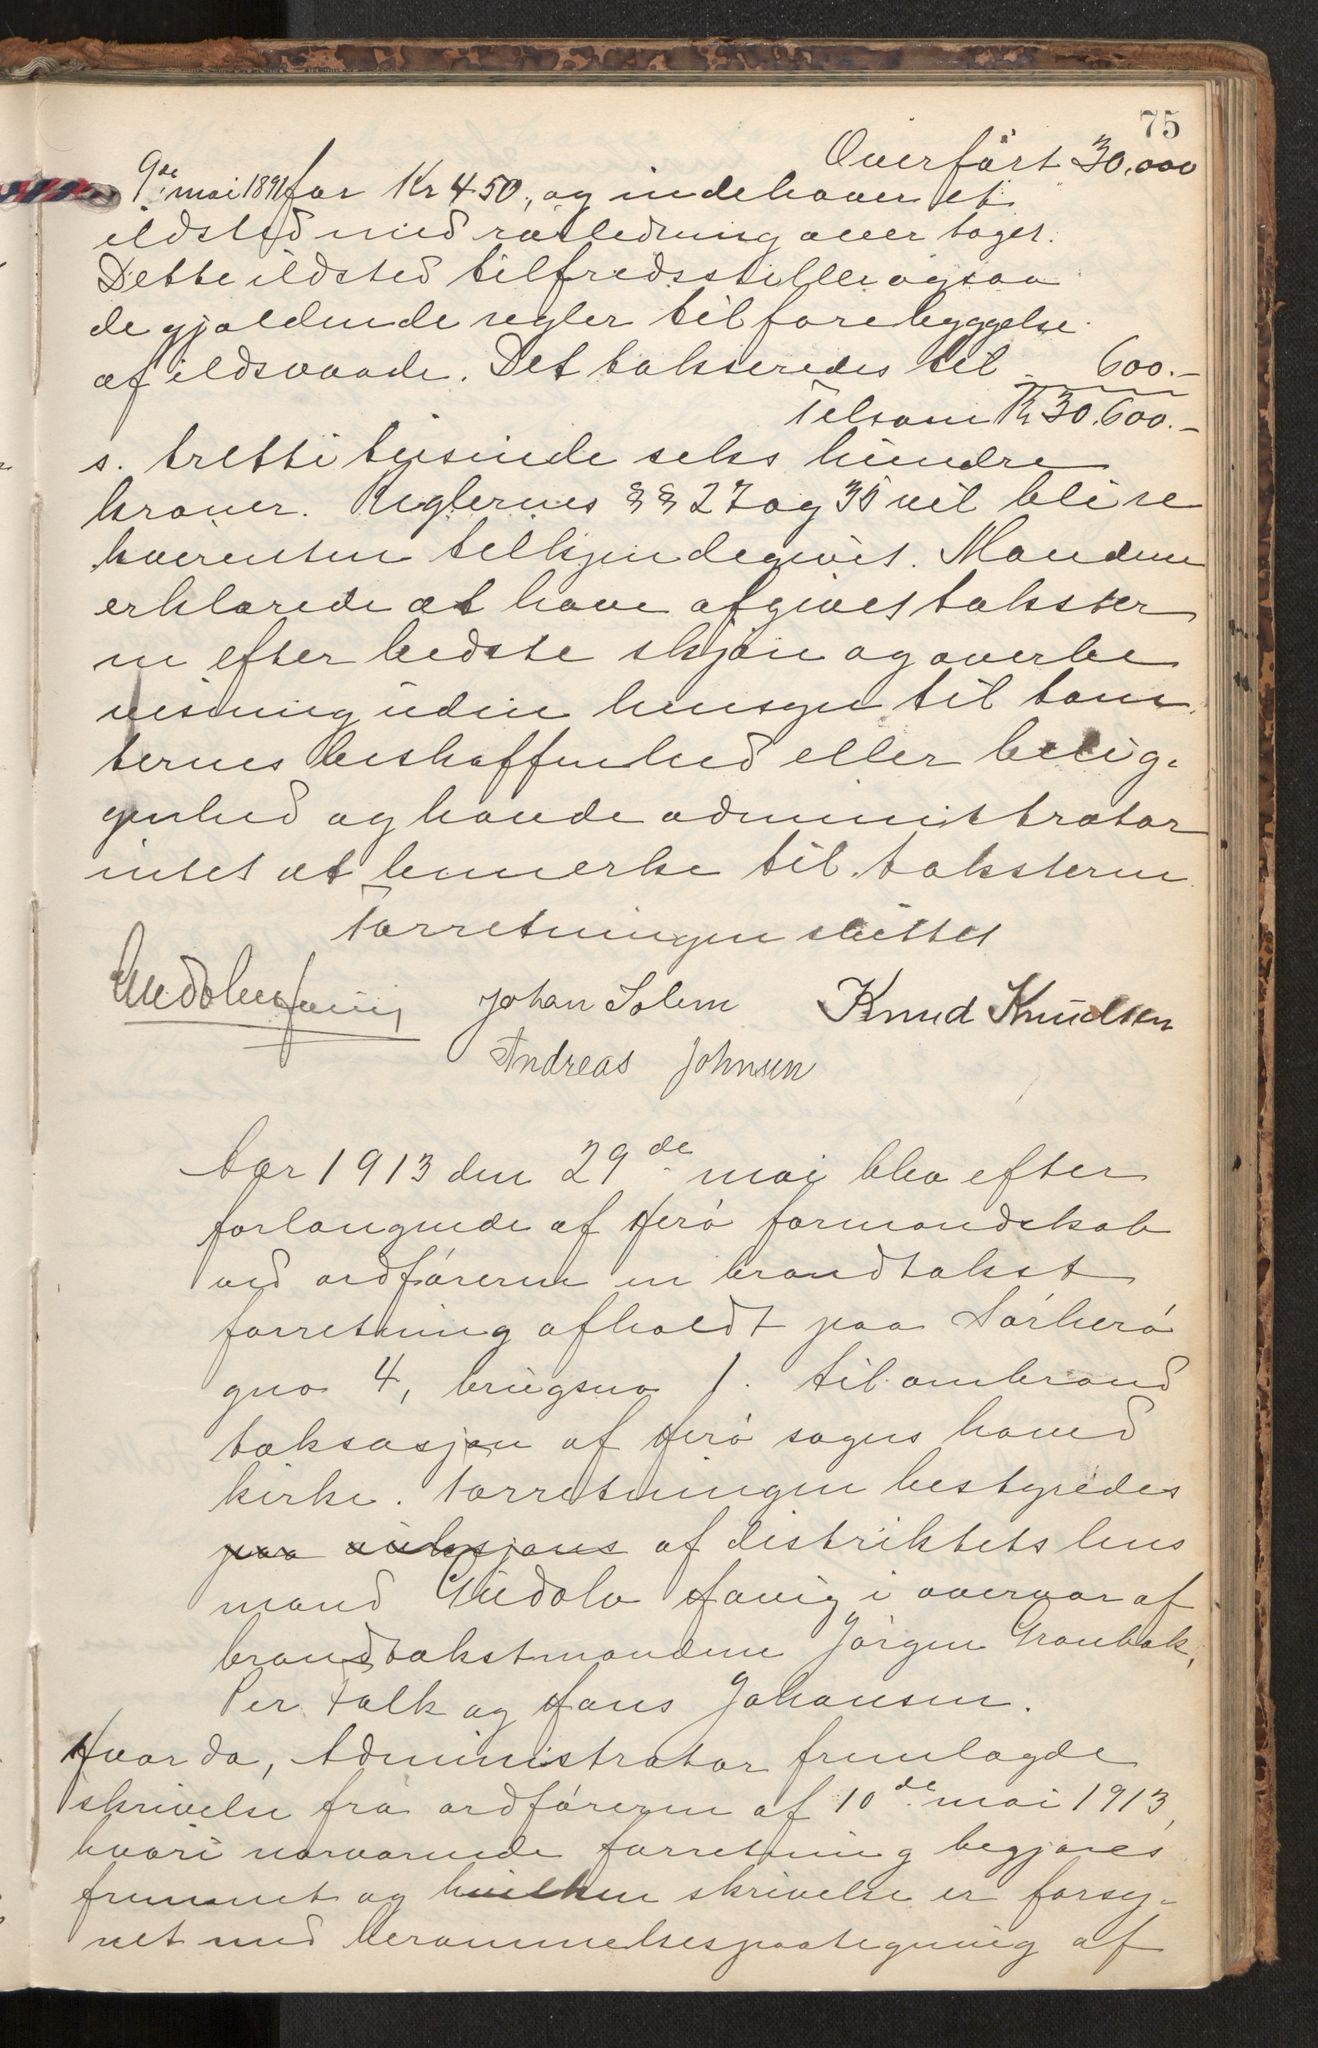 75
Overført 30.000
9de mai 1891 for Kr 450, og indehaver et
ildsted med rørledning over taget.
Dette ildsted tilfredsstiller ogsaa
de gjældende regler til forebyggelse
af ildsvaade. Det takseredes til 600.-
Tilsam Kr 30.600.-
s. tretti tusinde seks hundre
kroner. Reglernes §§ 27 og 35 vil bli re
kvirenten tilkjendegivet. Mændene
erklærede at have afgivet takster
ne efter bedste skjøn og overbe
visning uden hensyn til tom
ternes beskaffenhed eller belig-
genhed og havde administrator
intet at bemerke til taksterne.
Forretningen sluttet
Gudolv Høvig Johan Solem Knud Knudsen
Andreas Johnsen
Aar 1913 den 29de mai blev efter
forlangende af Herø formandskab
ved ordføreren en brandtakst
forretning afholdt paa Sørherø
gno 4, brugsno 1. til ombrand
taksasjon af Herø sogns hoved
kirke. Forretningen bestyredes
paa auksjons af distriktets lens
mand Gudolv Høvig i overvær af
brandtakstmændene Jørgen Grønbæk,
Per Falk og Hans Johansen.
Hvor da, Administrator fremlagde
skrivelse fra ordføreren af 10de mai 1913,
hvori nærværende forretning begjæres
fremmet og hvilken skrivelse er forsy-
net med berammelsespaategning af